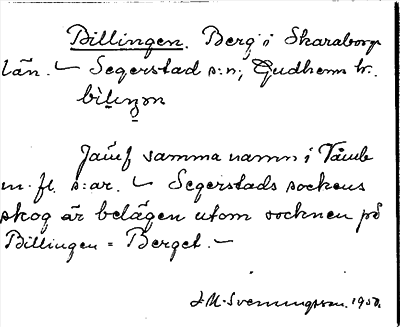 Billingen. Berg i Skaraborgs
län. – Segerstad s:n; Gudhems hr.
Jämf samma namn i Våmb
m. fl. s:ar. – Segerstads sockens
skog är belägen utom socknen på
Billingen = Berget. –
J. M. Svenningsson. 1950.